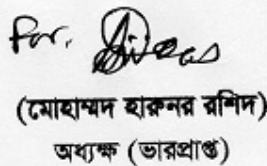 For,
(মোহাম্মদ হারুনর রশিদ)
অধ্যক্ষ (ভারপ্রাপ্ত)